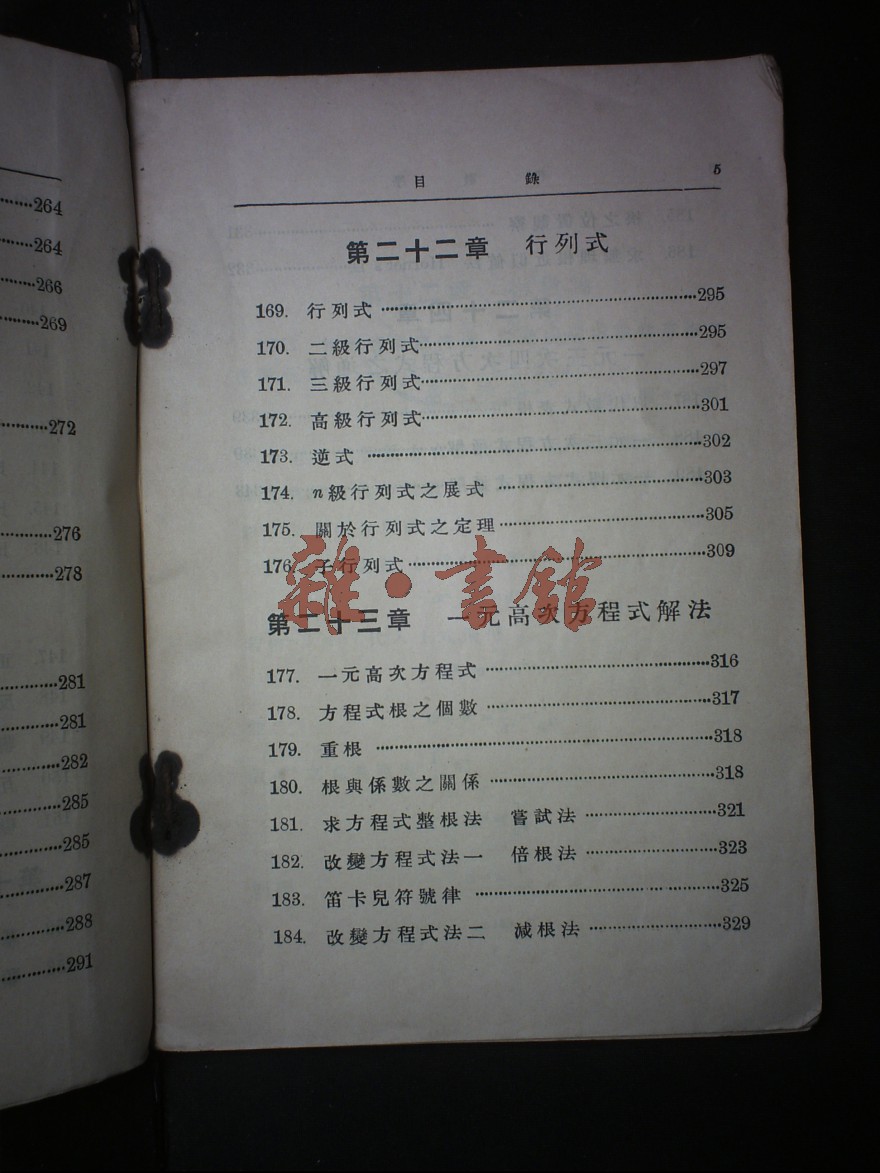 264
264
266
269
272
276
278
281
281
282
285
285
287
288
291
目 錄 5
第二十二章 行列式
169. 行列式 295
170. 二級行列式 295
171. 三級行列式 297
172. 高級行列式 301
173. 逆式 302
174. n級行列式之展式 303
175. 關於行列式之定理 305
176. 子行列式 309
雜·書館
第二十三章 一元高次方程式解法
177. 一元高次方程式 316
178. 方程式根之個數 317
179. 重根 318
180. 根與係數之關係 318
181. 求方程式整根法 嘗試法 321
182. 改變方程式法一 倍根法 323
183. 笛卡兒符號律 325
184. 改變方程式法二 減根法 329